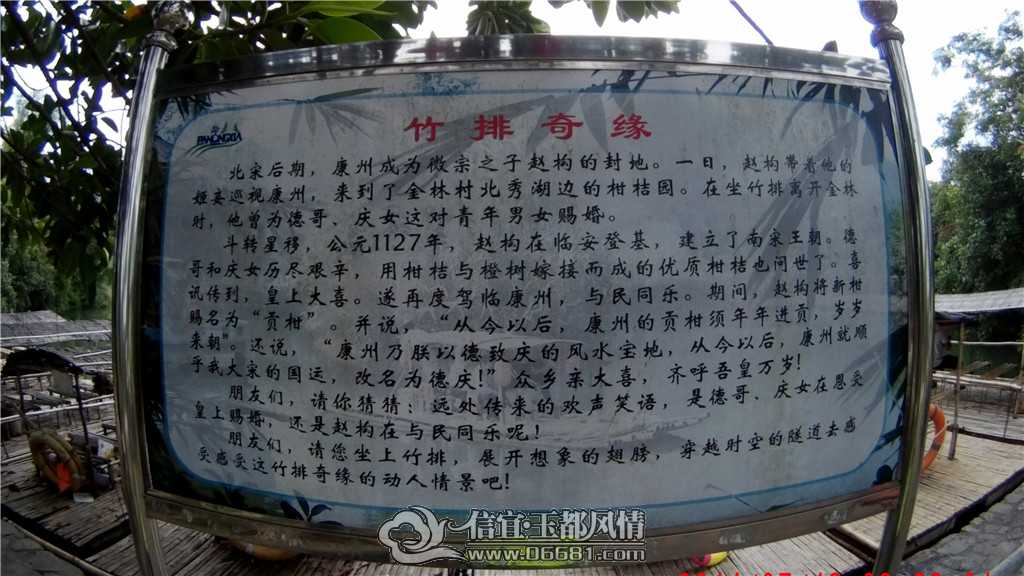 PANLONGXIA
竹排奇缘
北宋后期，康州成为微宗之子赵构的封地。一日，赵构带着他的
姬妾巡视康州，来到了金林村北秀湖边的柑桔园。在坐竹排离开金林
时，他曾为德哥、庆女这对青年男女赐婚。
斗转星移，公元1127年，赵构在临安登基，建立了南宋王朝。德
哥和庆女历尽艰辛，用柑桔与橙树嫁接而成的优质柑桔也问世了。喜
讯传到，皇上大喜。遂再度驾临康州，与民同乐。期间，赵构将新柑
赐名为“贡柑”。并说，“从今以后，康州的贡柑须年年进贡，岁岁
来朝”。还说，“康州乃朕以德致庆的风水宝地，从今以后，康州就顺
乎我大家的国运，改名为德庆!”众乡亲大喜，齐呼吾皇万岁!
朋友们，请你猜猜：远处传来的欢声笑语，是德哥、庆女在恩受
皇上赐婚，还是赵构在与民同乐呢!
朋友们，请您坐上竹排，展开想象的翅膀，穿越时空的隧道去感
受感受这竹排奇缘的动人情景吧!
信宜·玉都风情
www.06681.com